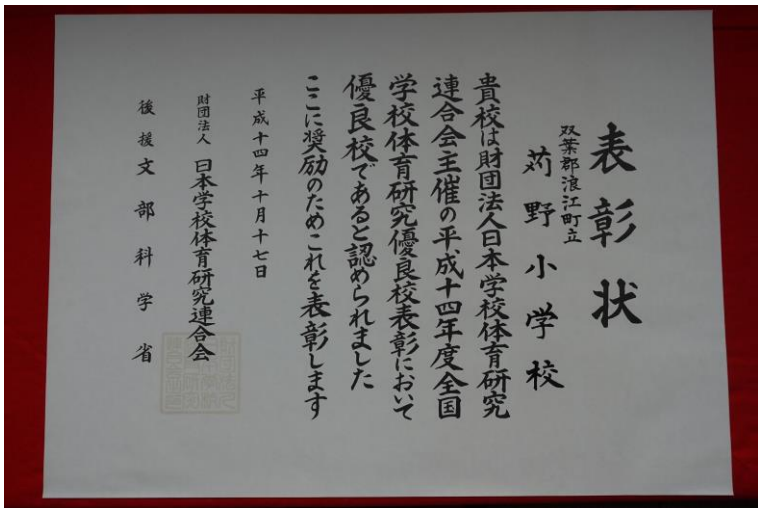 表彰状
双葉郡浪江町立
苅野小学校
貴校は財団法人日本学校体育研究
連合会主催の平成十四年度全国
学校体育研究優良校表彰において
優良校であると認められました
ここに奨励のためこれを表彰します
平成十四年十月十七日
財団法人 日本学校体育研究連合会
後援 文部科学省